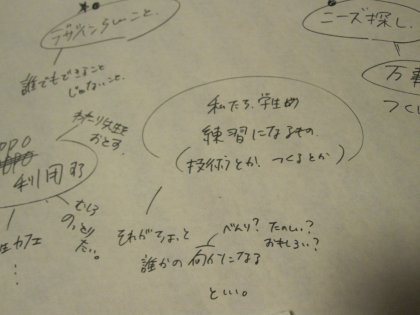 デザインらしいこと.
誰でもできること
じゃないこと.
ニーズ探し.
万事
つくし
わたり先生を
おとす.
利用す
むしろ
のっとり
たい。
生カフェ
⋮
私たち、学生の
練習になるもの.
(技術とか つくるとか)
それがちょっと
誰かの何かになる
といい。
べんり? たのしい?
おもしろい?